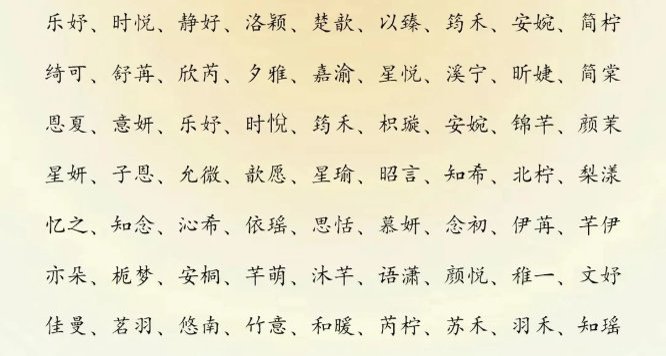 乐妤、时悦、静好、洛颖、楚歆、以臻、筠禾、安婉、简柠
绮可、舒苒、欣芮、夕雅、嘉渝、星悦、溪宁、昕婕、简棠
恩夏、意妍、乐妤、时悅、筠禾、枳璇、安婉、锦芊、颜茉
星妍、子恩、允微、歆愿、星瑜、昭言、知希、北柠、梨漾
忆之、知念、沁希、依瑶、思恬、慕妍、念初、伊苒、芊伊
亦朵、栀梦、安桐、芊萌、沐芊、语潇、颜悦、稚一、文妤
佳曼、茗羽、悠南、竹意、和暖、芮柠、苏禾、羽禾、知瑶